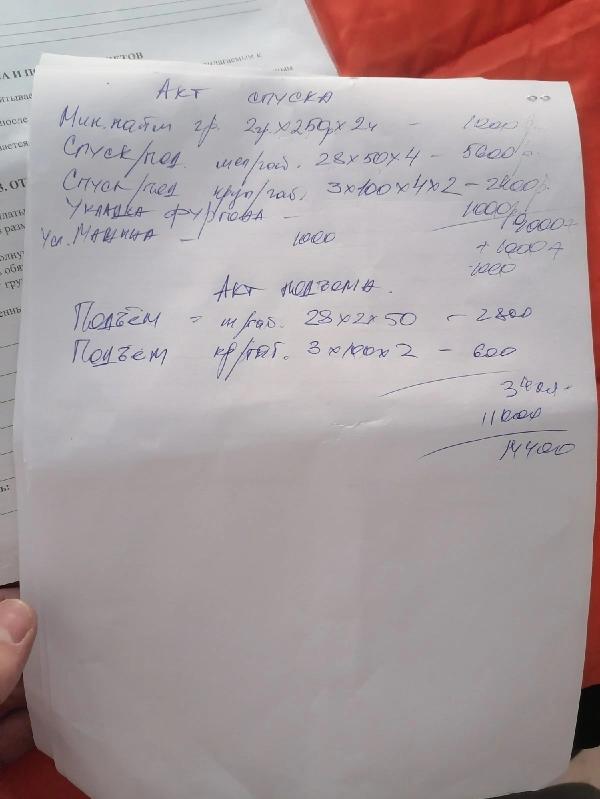 АКТ СПУСКА
Мин. найм гр. 2гр. х 250р х 2ч - 1000р.
Спуск/под. мел/габ. 28х50х4 - 5600р.
Спуск/под круп/габ. 3х100х4х2 - 2400р.
УКЛАДКА ФУРГОНА - 1000р
Ус. МАШИНА - 1000
+ 1000
1000
АКТ ПОДЪЕМА.
Подъём = м/габ. 28х2х50 - 2800
Подъем кр/габ. 3х100х2 - 600
11000
14400